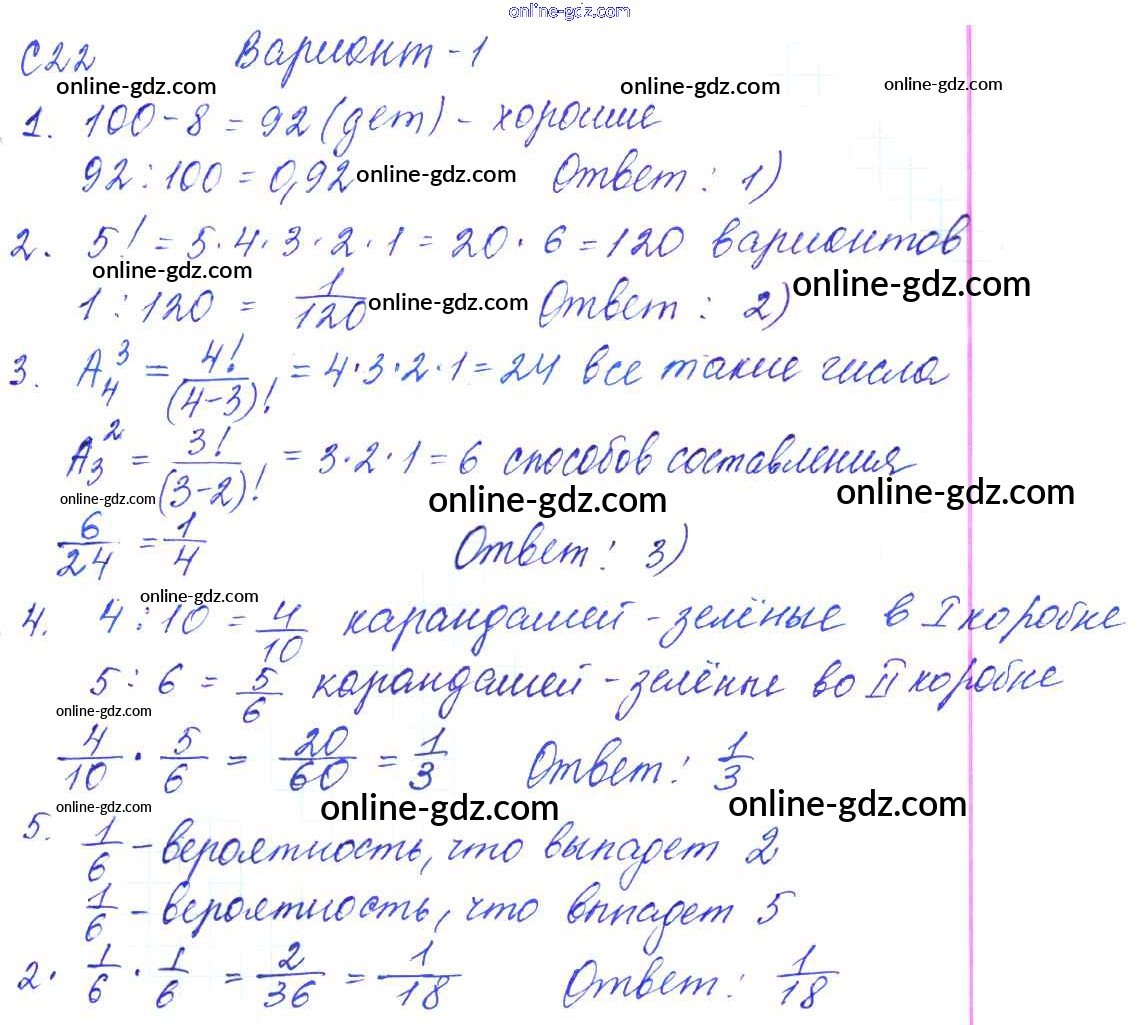 online-gdz.com
С22 Вариант-1
online-gdz.com online-gdz.com online-gdz.com
1. 100-8=92(дет)- хорошие
92:100=0,92 online-gdz.com Ответ: 1)
2. 5!=5·4·3·2·1=20·6=120 вариантов
online-gdz.com online-gdz.com
1:120 = 1/120 online-gdz.com Ответ: 2)
3. A₄³ = 4!/(4-3)! = 4·3·2·1=24 все такие числа
A₃² = 3!/(3-2)! = 3·2·1=6 способов составления
online-gdz.com online-gdz.com online-gdz.com
6/24 = 1/4 Ответ: 3)
online-gdz.com
4. 4:10 = 4/10 карандашей - зелёные в I коробке
5:6 = 5/6 карандашей - зелёные во II коробке
online-gdz.com
4/10 · 5/6 = 20/60 = 1/3 Ответ: 1/3
online-gdz.com online-gdz.com online-gdz.com
5. 1/6 - вероятность, что выпадет 2
1/6 - вероятность, что выпадет 5
2· 1/6 · 1/6 = 2/36 = 1/18 Ответ: 1/18